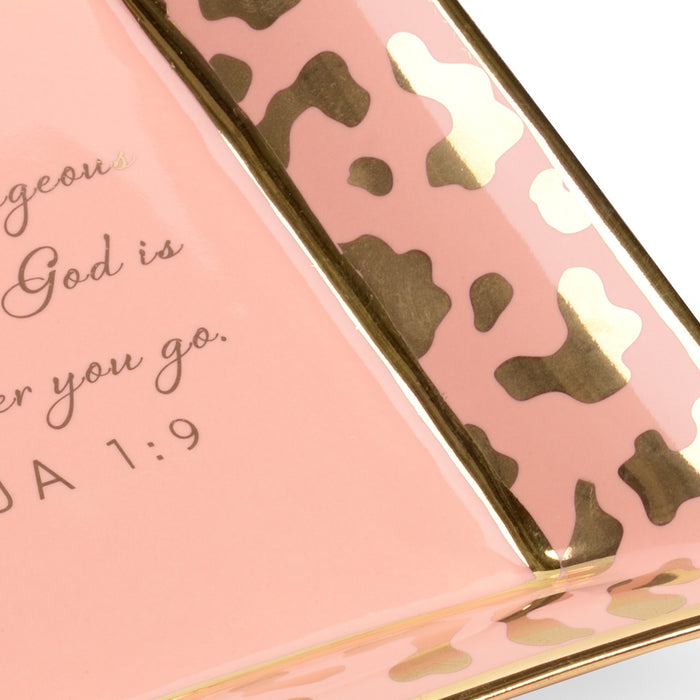 geous
God is
er you go.
UA 1:9